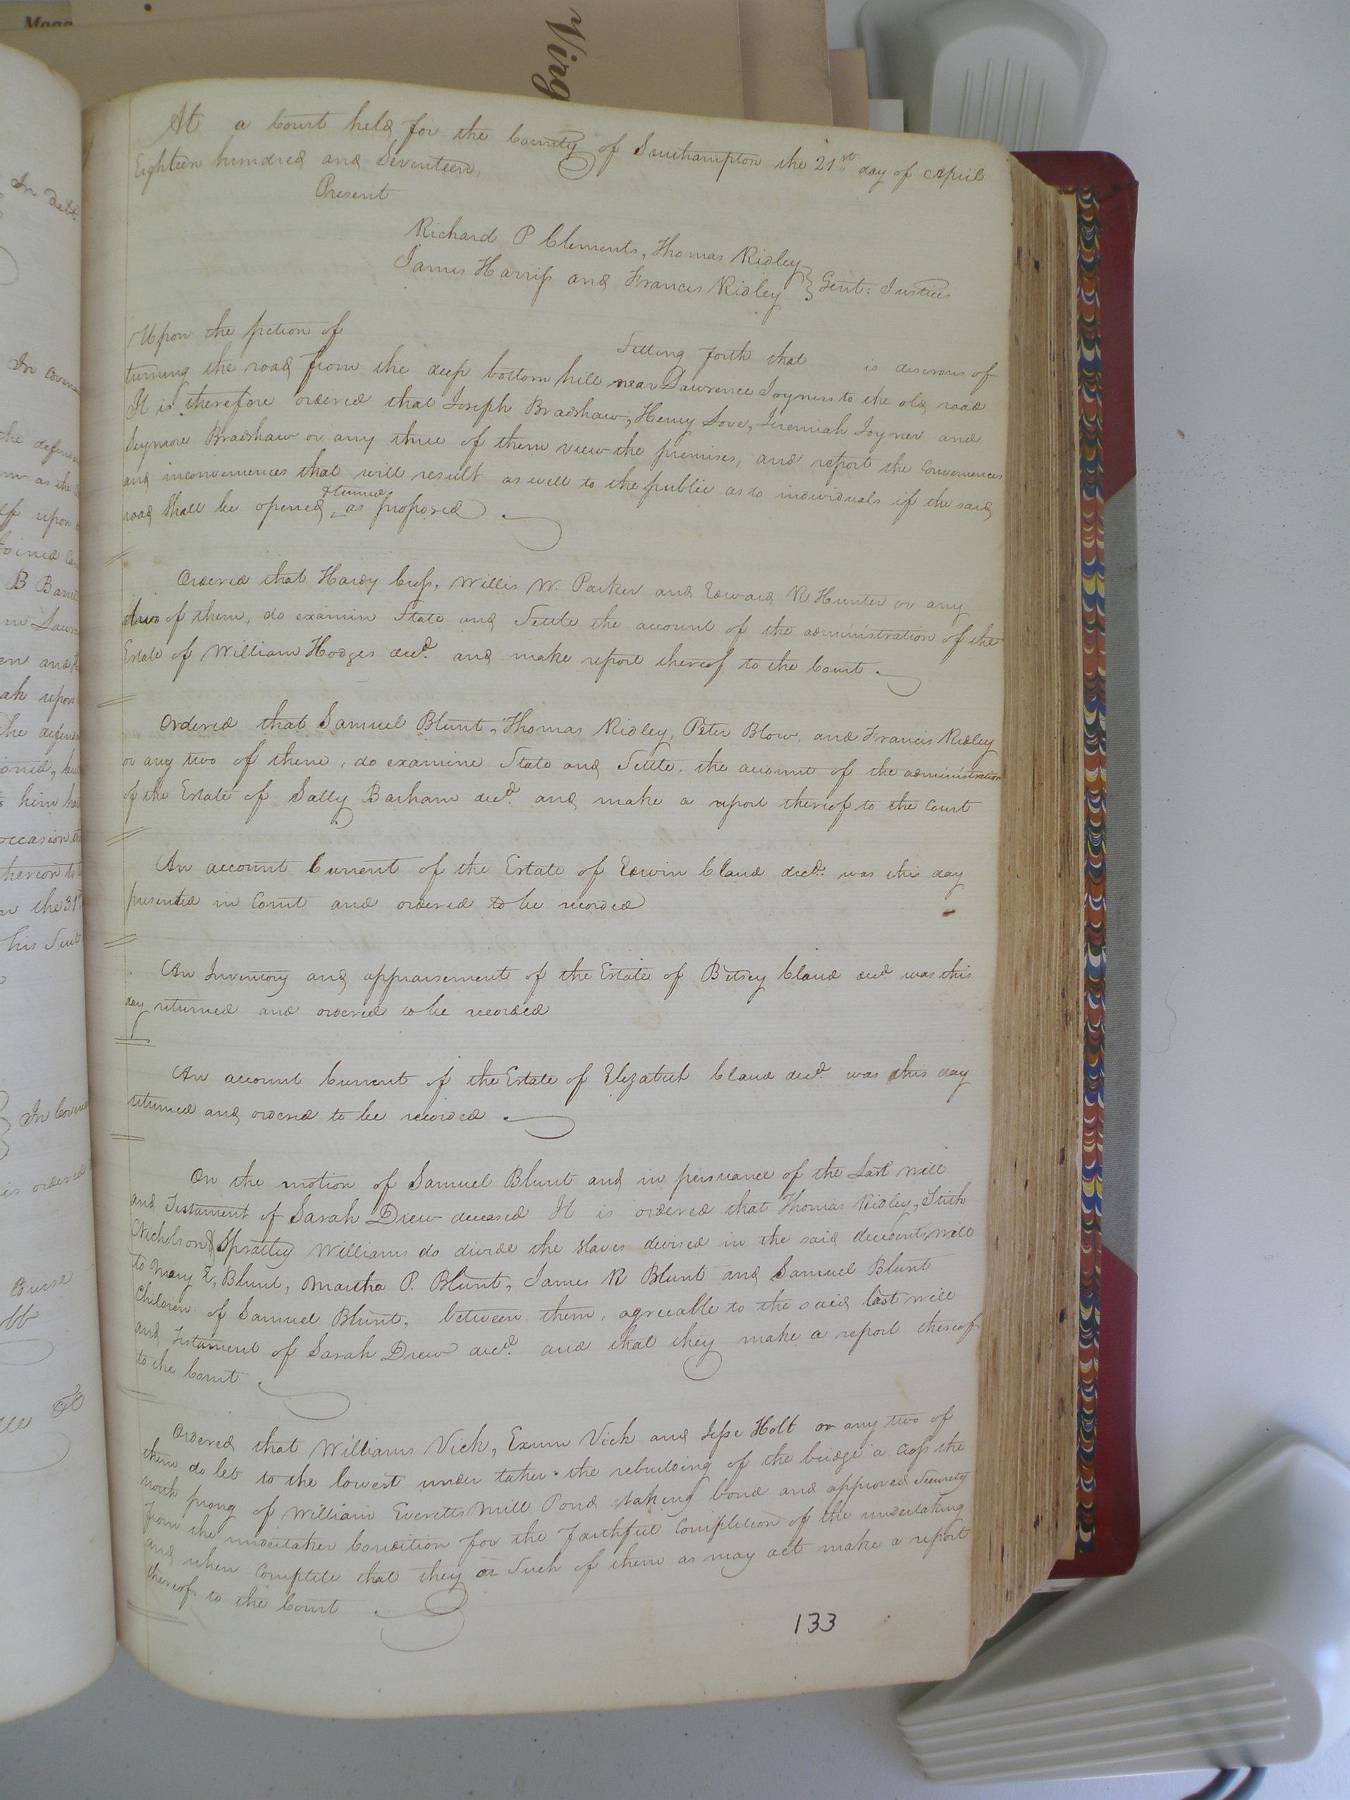 Mago
Virg
At a Court held for the County of Southampton the 21st day of April
Eighteen hundred and Seventeen.
Present
Richard P Clements, Thomas Ridley
James Harriss and Francis Ridley } Gent: Justices
Upon the pction of
Setting forth that is desirous of
turning the road from the deep bottom hill near Lawrence Joyners to the old road
It is therefore ordered that Joseph Bradshaw, Henry Love, Jeremiah Joyner and
Seymore Bradshaw or any three of them view the premises, and report the Conveniences
and inconveniences that will result as well to the public as to individuals if the said
road Shall be opened & turned as proposed
Ordered that Hardy Cuss, Willis W. Parker and Edward R Hunter or any
two of them, do examin State and Settle the account of the administration of the
Estate of William Hodges decd. and make report thereof to the Court
Ordered that Samuel Blunt, Thomas Ridley, Peter Blow, and Francis Ridley
or any two of them, do examine State and Settle, the account of the administration
of the Estate of Sally Barham decd. and make a report thereof to the Court
An account Current of the Estate of Edwin Claud decd. was this day
presented in Court and ordered to be recorded
An Inventory and appraisement of the Estate of Betsey Claud decd was this
day returned and ordered to be recorded
An account Current of the Estate of Elizabeth Claud decd. was this day
returned and ordered to be recorded
On the motion of Samuel Blunt and in persuance of the Last will
and Testament of Sarah Drew deceased It is ordered that Thomas Ridley,
Nicholson & Spratley Williams do divide the slaves devised in the said decedents will
to Mary E. Blunt, Martha P. Blunt, James R Blunt and Samuel Blunt
Children of Samuel Blunt, between them, agreeable to the said last will
and Testament of Sarah Drew decd. and that they make a report thereof
to the Court
Ordered that Williams Vick, Exum Vick and Jesse Holt or any two of
them do let to the lowest under taker the rebuilding of the bridge a cross the
north prong of William Everetts Mill Pond taking bond and approved Security
from the undertaker Condition for the faithful Completion of the undertaking
and when Complete that they or Such of them as may act make a report
thereof to the Court
133